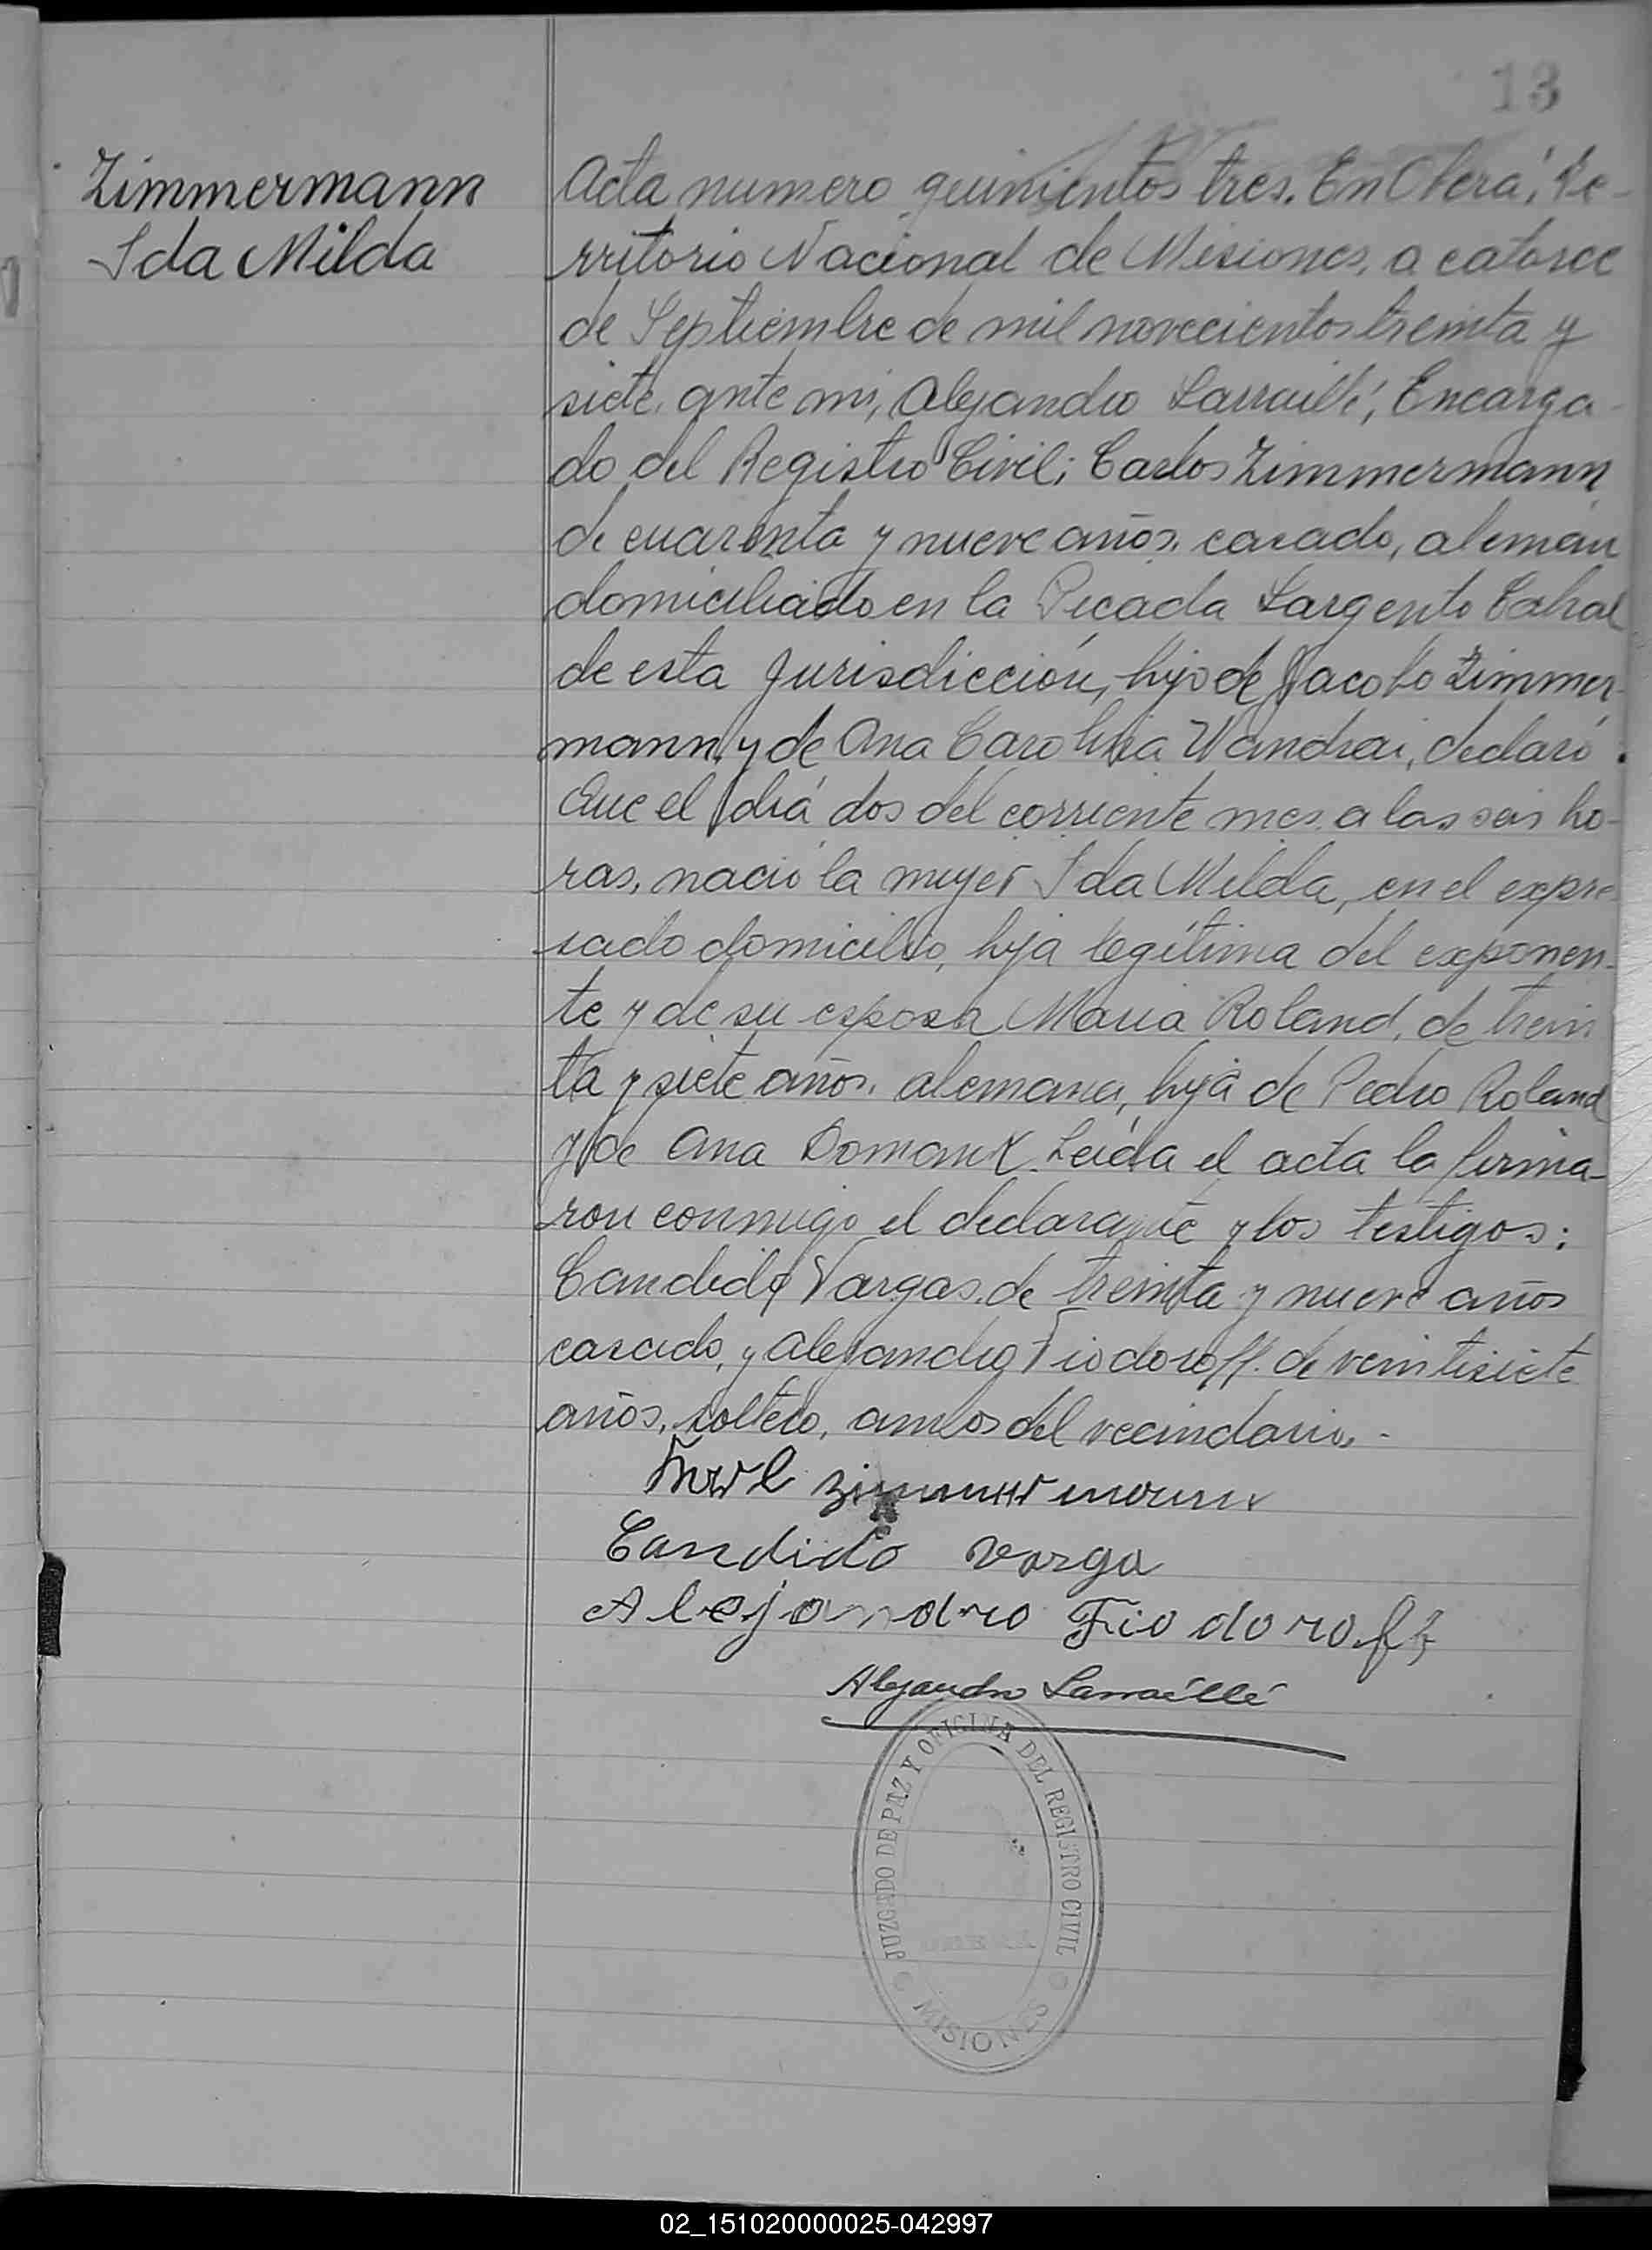 13
Zimmermann
Ida Milda
Acta numero quinientos tres. En Oberá, Te-
rritorio Nacional de Misiones, a catorce
de Septiembre de mil novecientos treinta y
siete, ante mi, Alejandro Larraillé, Encarga-
do del Registro Civil; Carlos Zimmermann
de cuarenta y nueve años, casado, alemán
domiciliado en la Picada Sargento Cabral
de esta Jurisdicción, hijo de Jacobo Zimmer-
mann y de Ana Carolina Wandrai, declaró:
Que el día dos del corriente mes a las seis ho-
ras, nació la mujer Ida Milda, en el expre-
sado domicilio, hija legítima del exponen-
te y de su esposa Maria Roland, de trein
ta y siete años, alemana, hija de Pedro Roland
y de Ana. Leida el acta la firma-
ron conmigo el declarante y los testigos:
Candido Vargas, de treinta y nueve años
casado, y Alejandro Fiodoroff, de veintisiete
años, soltero, ambos del vecindario. -
Karl Zimmermann
Candido Varga
Alejandro Fiodoroff
Alejandro Larraillé
JUZGADO DE PAZ Y OFICINA DEL REGISTRO CIVIL
MISIONES
02_151020000025-042997